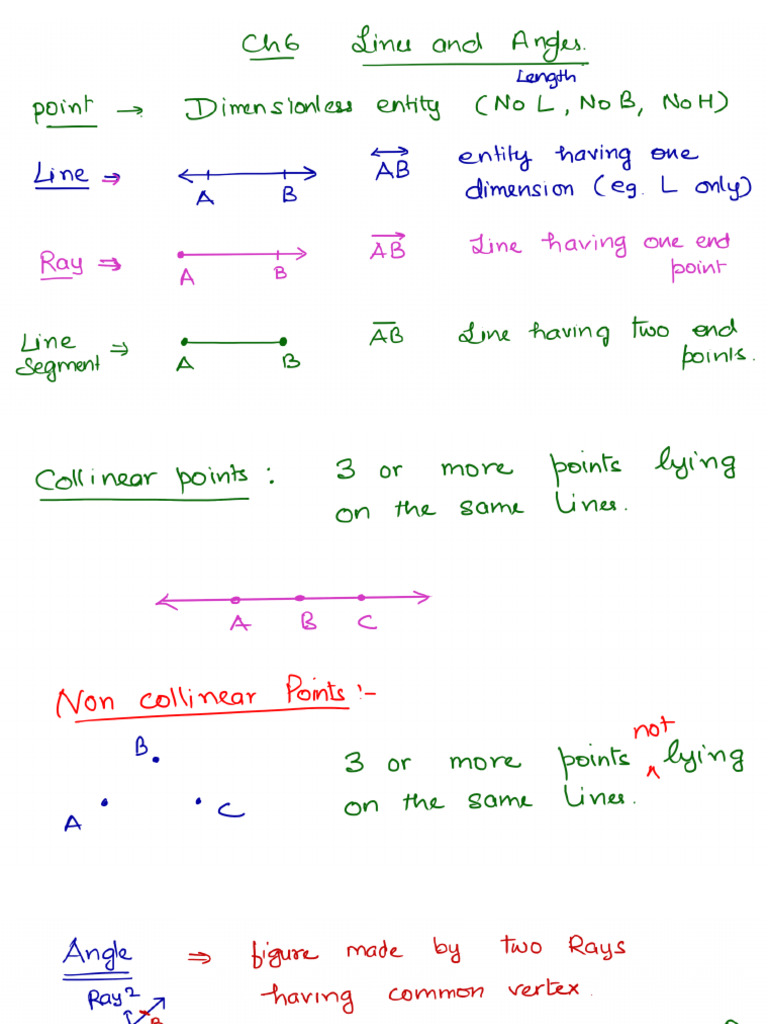 Ch6 Lines and Angles.
Length
point → Dimensionless entity (No L, No B, No H)
Line ⇒ A B AB entity having one
dimension (eg. L only)
Ray ⇒ A B AB Line having one end
point
Line
Segment ⇒ A B AB Line having two end
points.
Collinear points : 3 or more points lying
on the same lines.
A B C
Non collinear Points :-
not
B 3 or more points lying
A C on the same lines.
Angle ⇒ figure made by two Rays
having common vertex.
Ray 2
B